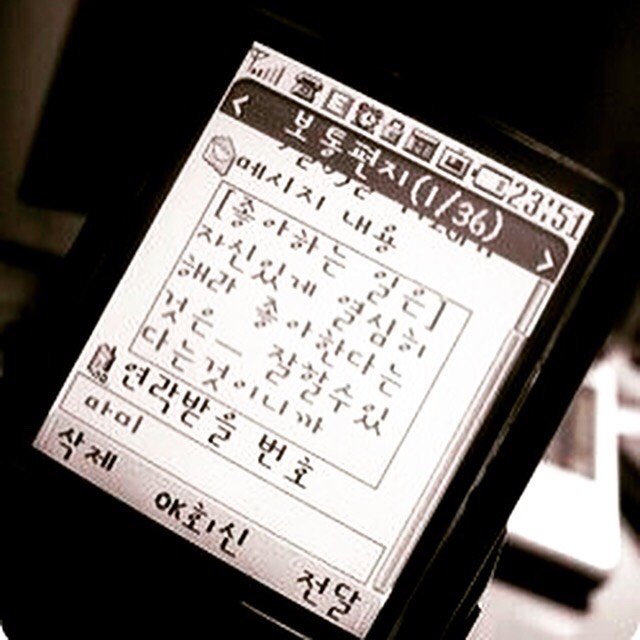 23:51
보통편지(1/36)
메시지 내용
[좋아하는 일은]
자신있게 열심히
해라 좋아한다는
것은 잘할수있
다는것이니까
연락받을 번호
마미
삭제 OK회신 전달